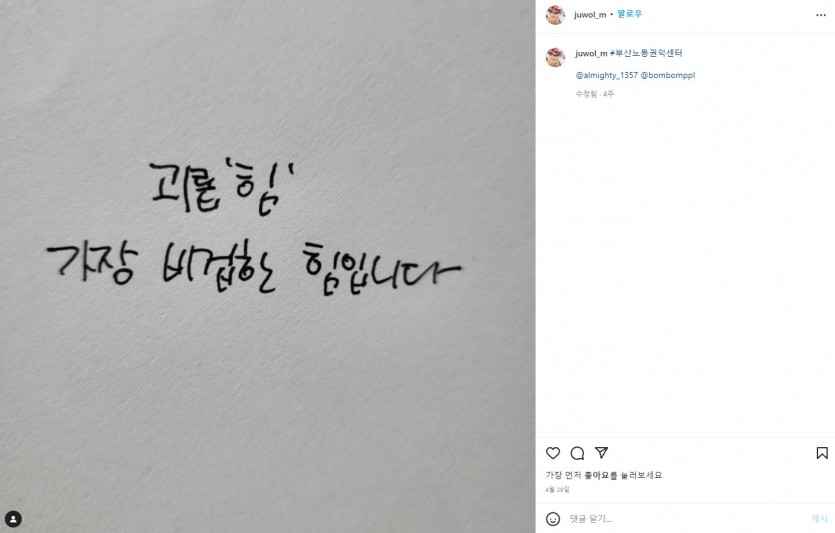 juwol_m • 팔로우
juwol_m #부산노동권익센터
@almighty_1357 @bombomppl
수정됨 · 4주
괴롭'힘'
가장 비겁한 힘입니다
가장 먼저 좋아요를 눌러보세요
4월 29일
댓글 달기...
게시